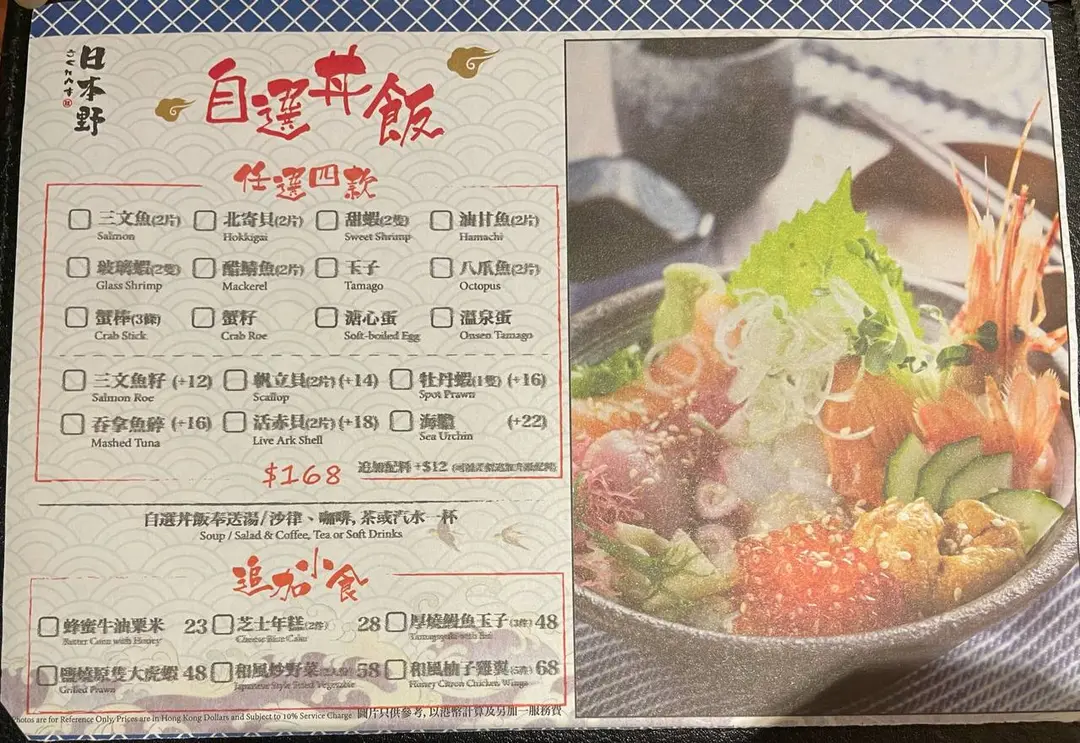 日本野
自選丼飯
任選四款
三文魚(2片) 北寄貝(2片) 甜蝦(2隻) 油甘魚(2片)
Salmon Hokkigai Sweet Shrimp Hamachi
玻璃蝦(2隻) 醋鯖魚(2片) 玉子 八爪魚(2片)
Glass Shrimp Mackerel Tamago Octopus
蟹棒(3條) 蟹籽 溏心蛋 溫泉蛋
Crab Stick Crab Roe Soft-boiled Egg Onsen Tamago
三文魚籽 (+12) 帆立貝(2片) (+14) 牡丹蝦(1隻) (+16)
Salmon Roe Scallop Spot Prawn
吞拿魚碎 (+16) 活赤貝(2片) (+18) 海膽 (+22)
Mashed Tuna Live Ark Shell Sea Urchin
$168 追加配料 +$12
自選丼飯奉送湯/沙律、咖啡, 茶或汽水一杯
Soup / Salad & Coffee, Tea or Soft Drinks
追加小食
蜂蜜牛油粟米 23 芝士年糕(2件) 28 厚燒鰻魚玉子(3件) 48
Butter Corn with Honey Cheese Rice Cake Tamagoyaki with Eel
鹽燒原隻大虎蝦 48 和風炒野菜 58 和風柚子雞翼(5件) 68
Grilled Prawn Japanese Style Fried Vegetable Honey Citron Chicken Wings
Photos are for Reference Only, Prices are in Hong Kong Dollars and Subject to 10% Service Charge 圖片只供參考, 以港幣計算及另加一服務費